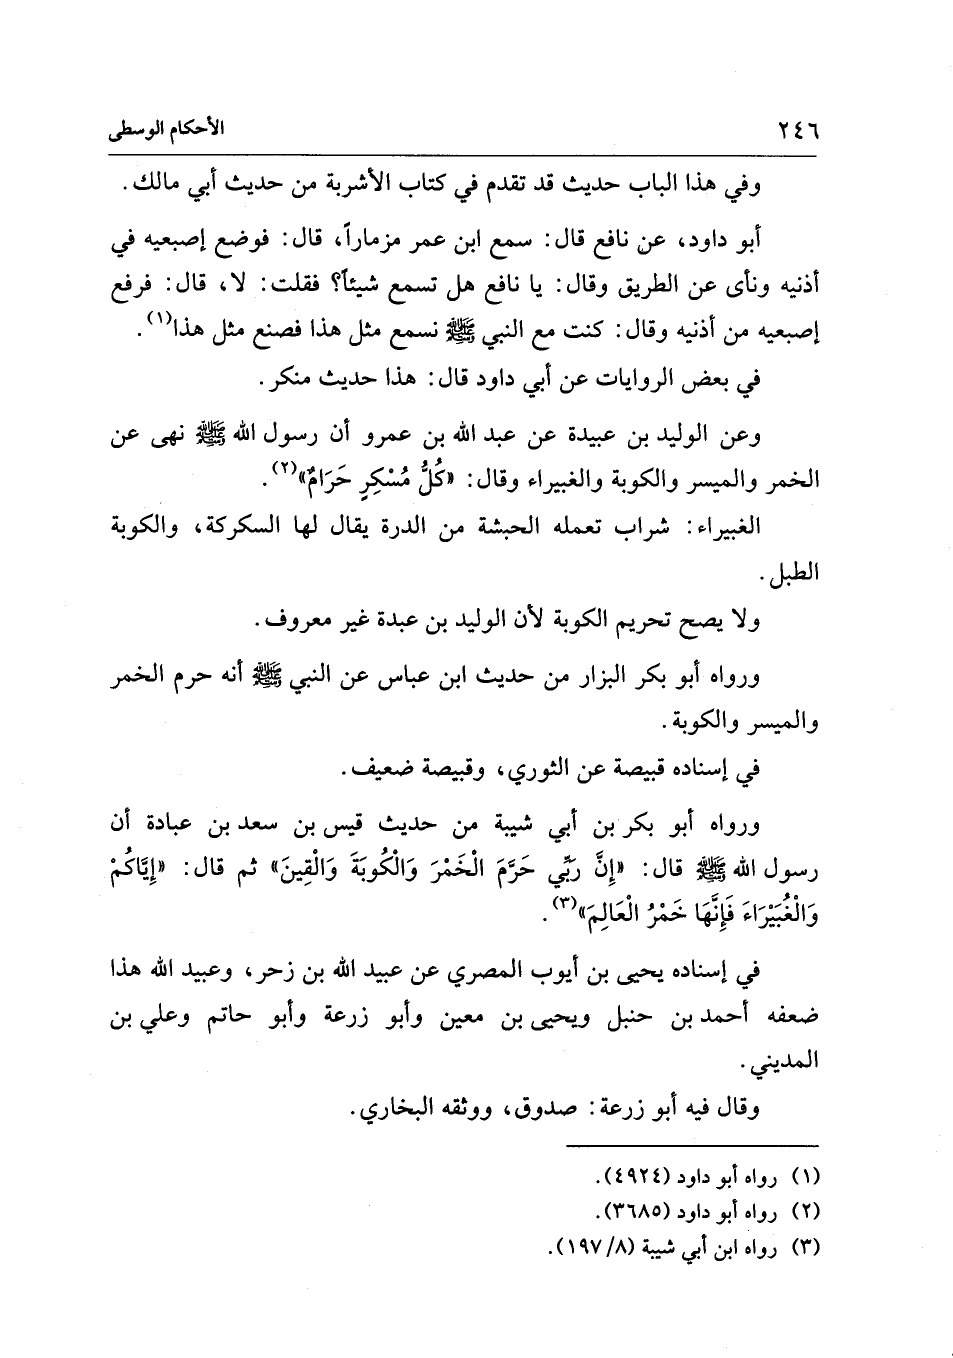 ٢٤٦ الأحكام الوسطى
وفي هذا الباب حديث قد تقدم في كتاب الأشربة من حديث أبي مالك.
أبو داود، عن نافع قال: سمع ابن عمر مزماراً، قال: فوضع إصبعيه في
أذنيه ونأى عن الطريق وقال: يا نافع هل تسمع شيئاً؟ فقلت: لا، قال: فرفع
إصبعيه من أذنيه وقال: كنت مع النبي ﷺ نسمع مثل هذا فصنع مثل هذا(١).
في بعض الروايات عن أبي داود قال: هذا حديث منكر.
وعن الوليد بن عبيدة عن عبد الله بن عمرو أن رسول الله ﷺ نهى عن
الخمر والميسر والكوبة والغبيراء وقال: «كُلُّ مُسْكِرٍ حَرَامٌ»(٢).
الغبيراء: شراب تعمله الحبشة من الدرة يقال لها السكركة، والكوبة
الطبل.
ولا يصح تحريم الكوبة لأن الوليد بن عبدة غير معروف.
ورواه أبو بكر البزار من حديث ابن عباس عن النبي ﷺ أنه حرم الخمر
والميسر والكوبة.
في إسناده قبيصة عن الثوري، وقبيصة ضعيف.
ورواه أبو بكر بن أبي شيبة من حديث قيس بن سعد بن عبادة أن
رسول الله ﷺ قال: «إِنَّ رَبِّي حَرَّمَ الْخَمْرَ وَالْكُوبَةَ وَالْقِينَ» ثم قال: «إِيَّاكُمْ
وَالْغُبَيْرَاءَ فَإِنَّهَا خَمْرُ الْعَالِمَ»(٣).
في إسناده يحيى بن أيوب المصري عن عبيد الله بن زحر، وعبيد الله هذا
ضعفه أحمد بن حنبل ويحيى بن معين وأبو زرعة وأبو حاتم وعلي بن
المديني.
وقال فيه أبو زرعة: صدوق، ووثقه البخاري.
(١) رواه أبو داود (٤٩٢٤).
(٢) رواه أبو داود (٣٦٨٥).
(٣) رواه ابن أبي شيبة (٨/ ١٩٧).